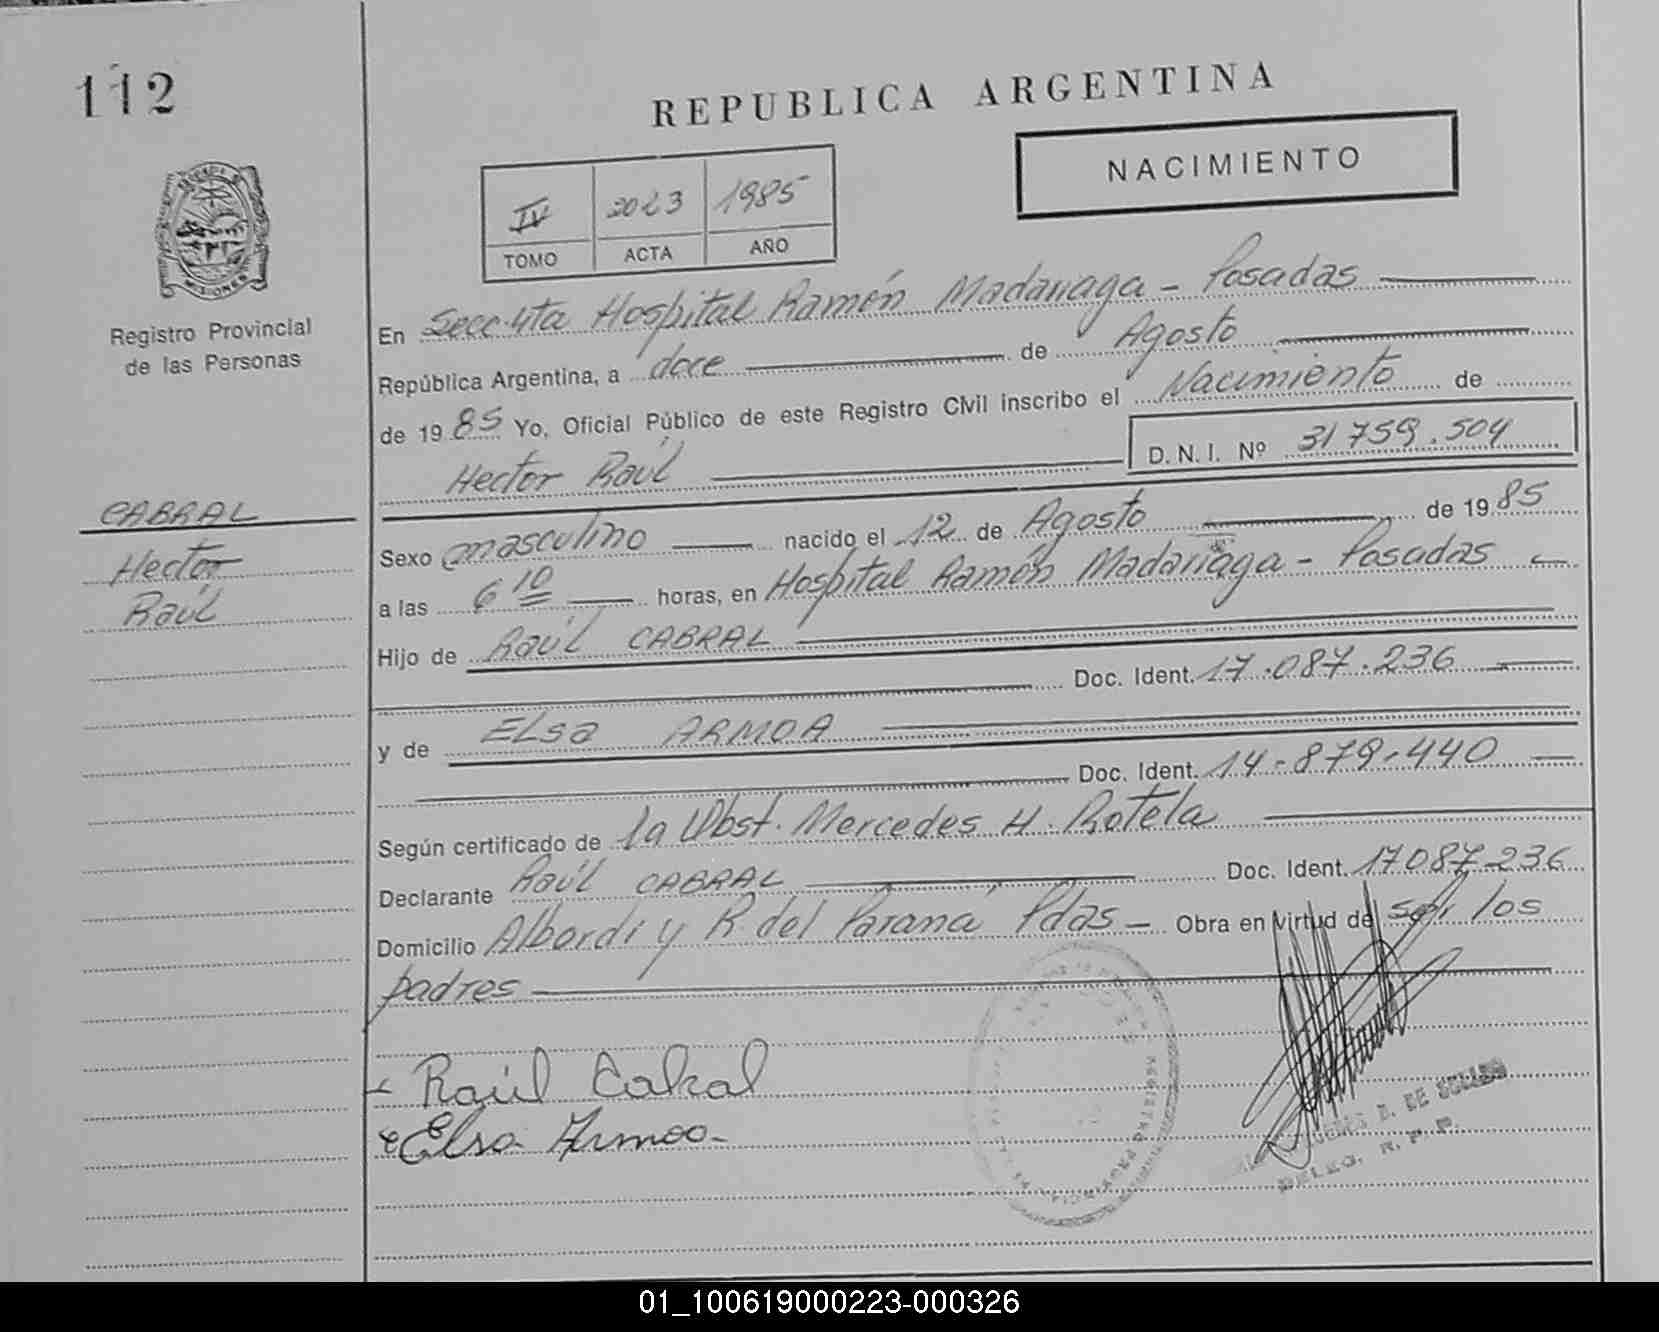 112
REPUBLICA ARGENTINA
NACIMIENTO
IV 2023 1985
TOMO ACTA AÑO
Registro Provincial
de las Personas
MISIONES
En Secc. 4ta Hospital Ramón Madariaga - Posadas
República Argentina, a doce de Agosto
de 1985 Yo, Oficial Público de este Registro Civil inscribo el Nacimiento de
Hector Raúl D. N. I. Nº 31759.504
CABRAL
Hector
Raúl
Sexo masculino nacido el 12 de Agosto de 1985
a las 6 10 horas, en Hospital Ramón Madariaga - Posadas
Hijo de Raúl CABRAL
Doc. Ident. 17.087.236
y de Elsa ARMOA
Doc. Ident. 14.879.440
Según certificado de la Obst. Mercedes H. Rotela
Declarante Raúl CABRAL Doc. Ident. 17087236
Domicilio Alberdi y R. del Paraná Pdas - Obra en Virtud de ser los
padres
Raúl Cabral
Elsa Armoa
DE
DELEG. R. P. P.
01_100619000223-000326